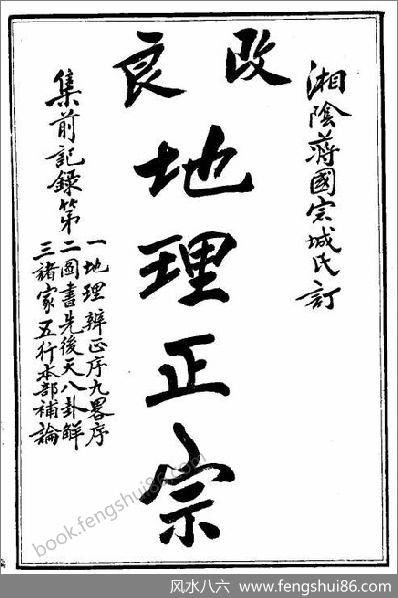 湘陰蔣國宗城氏訂
改良
地理正宗
集前記錄第
一地理辨正序九畧序
二圖書先後天八卦解
三諸家五行本部補論
book.fengshui86.com
风水八六 www.fengshui86.com